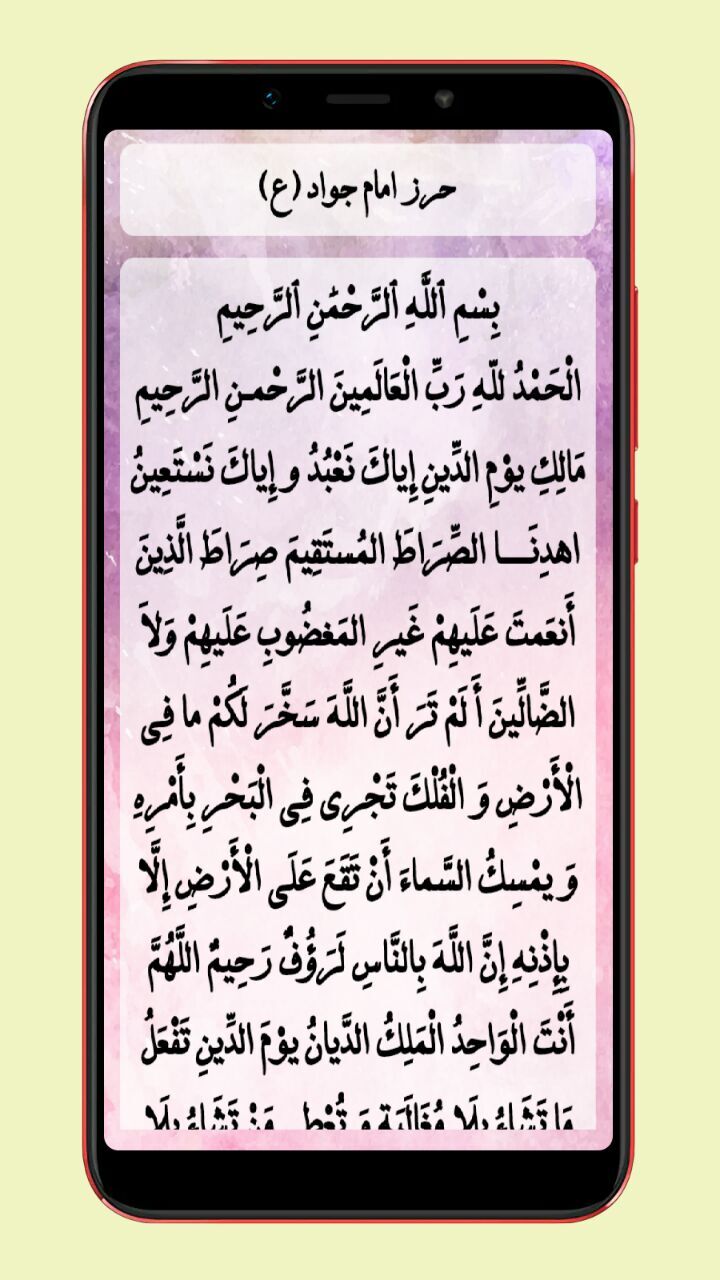 حرز امام جواد (ع)
بِسْمِ ٱللَّهِ ٱلرَّحْمَٰنِ ٱلرَّحِيمِ
الْحَمْدُ للّهِ رَبِّ الْعَالَمِينَ الرَّحْمـنِ الرَّحِيمِ
مَالِكِ يوْمِ الدِّينِ إِياكَ نَعْبُدُ و إِياكَ نَسْتَعِينُ
اهدِنَــــا الصِّرَاطَ المُستَقِيمَ صِرَاطَ الَّذِينَ
أَنعَمتَ عَلَيهِمْ غَيرِ المَغضُوبِ عَلَيهِمْ وَلاَ
الضَّالِّينَ أَ لَمْ تَرَ أَنَّ اللَّهَ سَخَّرَ لَكُمْ ما فِى
الْأَرْضِ وَ الْفُلْكَ تَجْرِى فِى الْبَحْرِ بِأَمْرِهِ
وَ يمْسِكُ السَّماءَ أَنْ تَقَعَ عَلَى الْأَرْضِ إِلَّا
بِإِذْنِهِ إِنَّ اللَّهَ بِالنَّاسِ لَرَؤُفٌ رَحِيمٌ اللَّهُمَّ
أَنْتَ الْوَاحِدُ الْمَلِكُ الدَّيانُ يوْمَ الدِّينِ تَفْعَلُ
مَا تَشَاءُ بِلَا مُغَالَبَةٍ وَ تُعْطِى مَنْ تَشَاءُ بِلَا